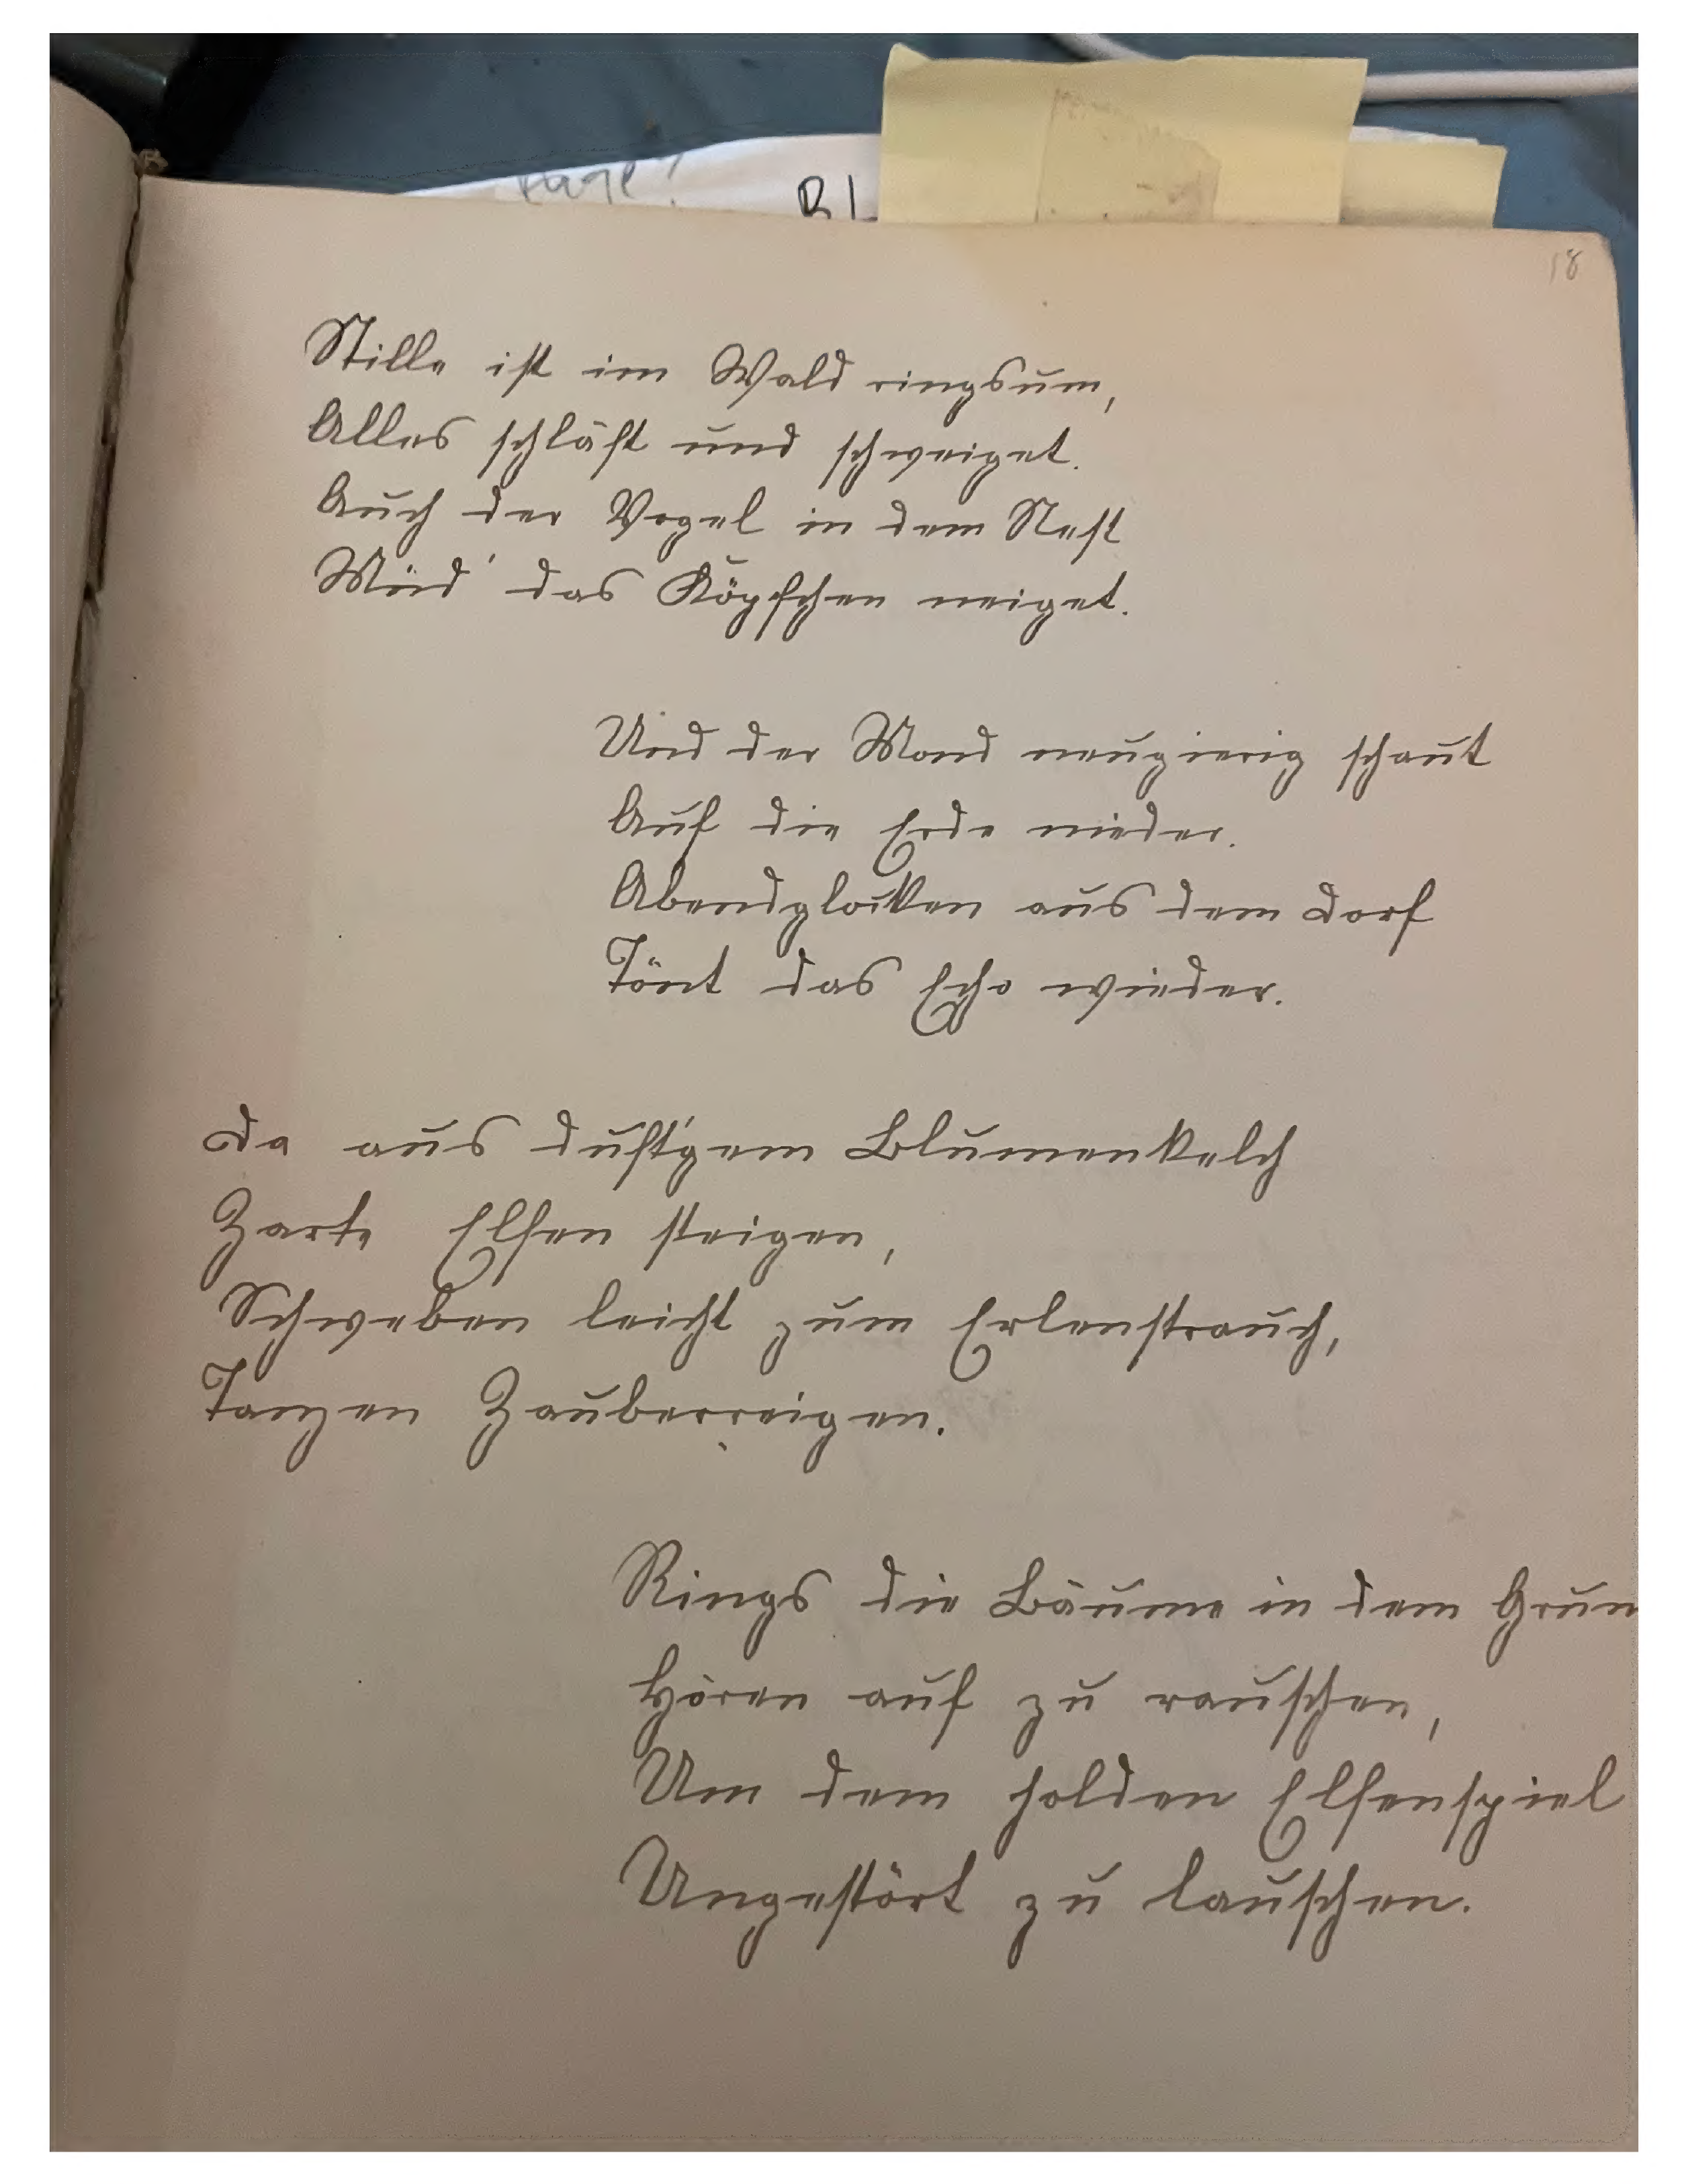 18
Stille ist im Wald ringsum,
Alles schläft und schweiget.
Auch der Vogel in dem Nest
Müd' das Köpfchen neiget.
Und der Mond neugierig schaut
Auf die Erde nieder.
Abendglocken aus dem Dorf
Tönt das Echo wieder.
Da aus duft'gem Blumenkelch
Zarte Elfen steigen,
Schweben leicht zum Erlenstrauch,
Tanzen Zauberreigen.
Rings die Bäume in dem Grun
Hören auf zu rauschen,
Um dem holden Elfenspiel
Ungestört zu lauschen.